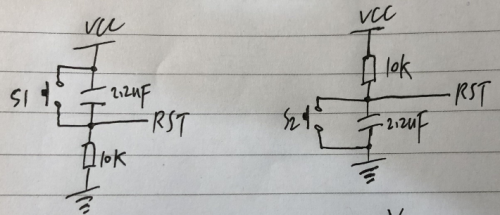 VCC
S1
2.2uF
RST
10K
VCC
10K
RST
S2
2.2uF